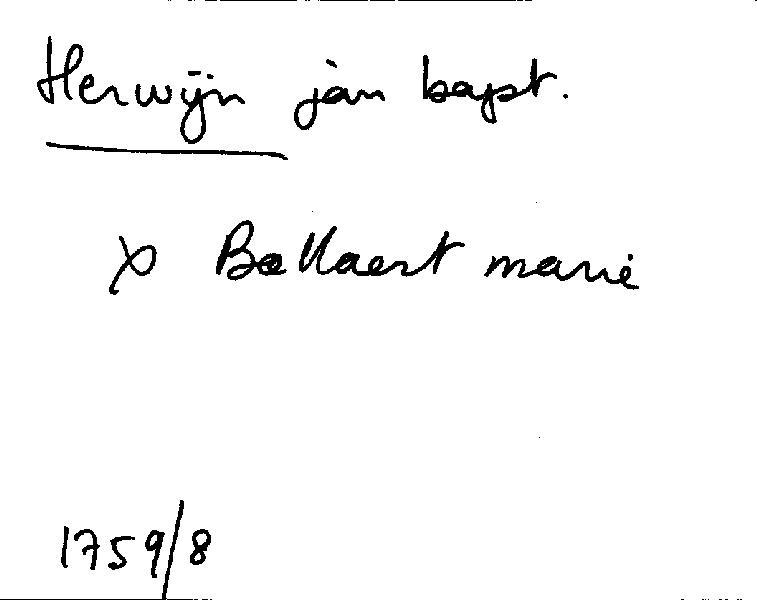 Herwijn jan bapt.
x Ballaert marie
1759/8